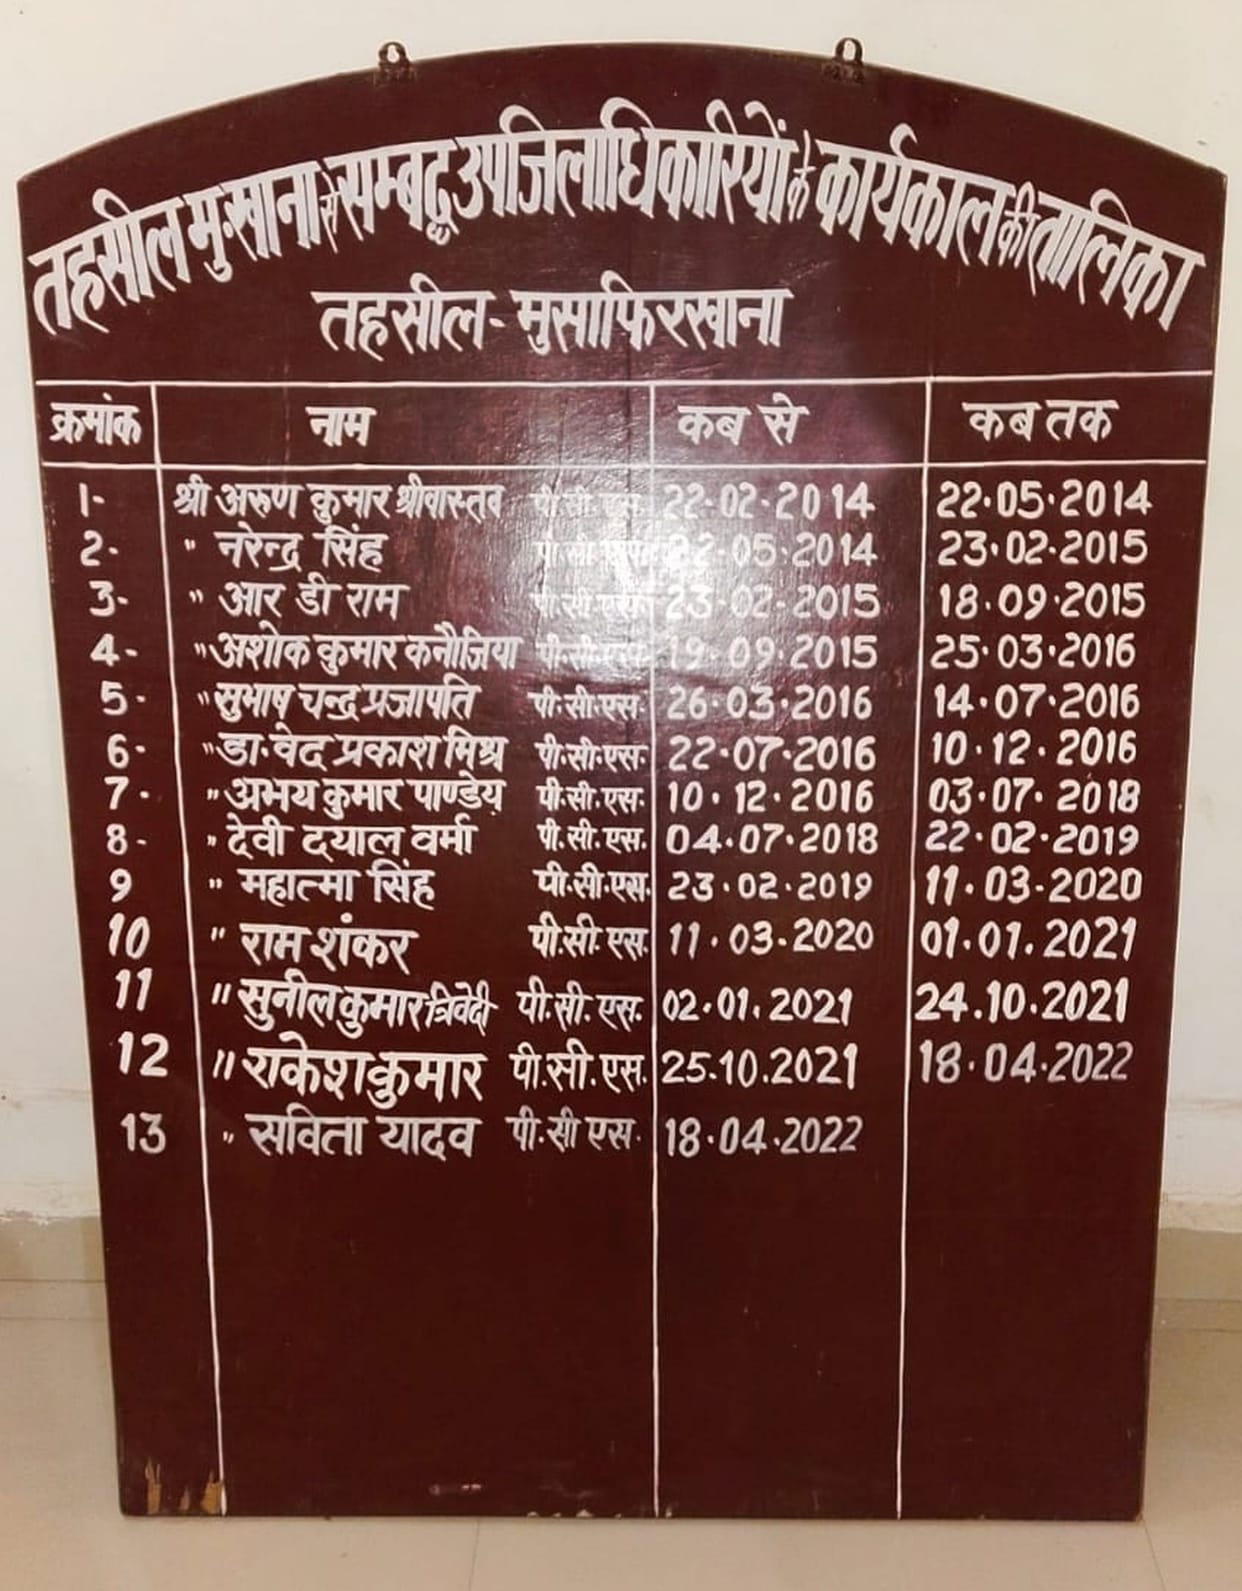 तहसील मु.खाना से सम्बद्ध उपजिलाधिकारियों के कार्यकाल की तालिका
तहसील - मुसाफिरखाना
क्रमांक नाम कब से कब तक
1- श्री अरुण कुमार श्रीवास्तव पी.सी.एस. 22-02-2014 22.05.2014
2- " नरेन्द्र सिंह पी.सी.एस. 22-05-2014 23.02-2015
3- " आर डी राम पी.सी.एस. 23-02-2015 18.09.2015
4- " अशोक कुमार कनौजिया पी.सी.एस. 19-09.2015 25.03.2016
5- " सुभाष चन्द्र प्रजापति पी.सी.एस. 26.03.2016 14.07.2016
6- " डा. वेद प्रकाश मिश्र पी.सी.एस. 22.07.2016 10.12.2016
7- " अभय कुमार पाण्डेय पी.सी.एस. 10.12.2016 03.07.2018
8- " देवी दयाल वर्मा पी.सी.एस. 04.07.2018 22.02.2019
9 " महात्मा सिंह पी.सी.एस. 23.02.2019 11.03-2020
10 " राम शंकर पी.सी.एस. 11.03.2020 01.01.2021
11 " सुनील कुमार त्रिवेदी पी.सी.एस. 02.01.2021 24.10.2021
12 " राकेश कुमार पी.सी.एस. 25.10.2021 18.04.2022
13 " सविता यादव पी.सी एस. 18.04.2022